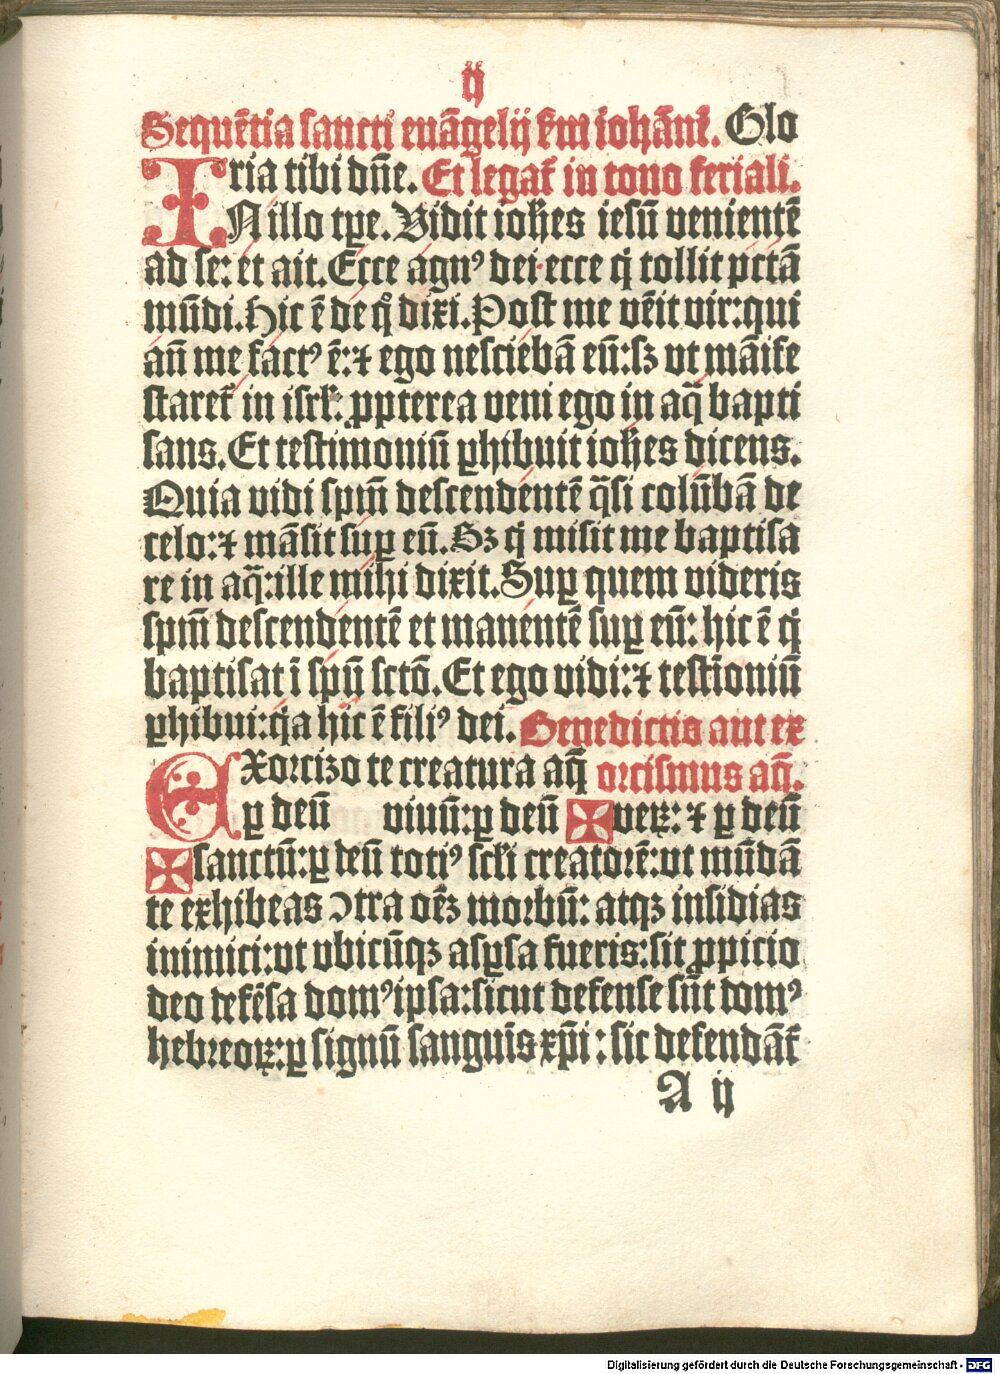 ij
Sequētia sancti euāgelij ẜm iohānē. Glo
ria tibi dn̄e. Et legat᷑ in tono feriali.
IN illo tꝑe. Vidit ioh̄es iesū venientē
ad se: et ait. Ecce agnꝰ dei ecce q̇ tollit pctā
mūdi. Hic ē de q̊ dixi. Post me vēit vir: qui
an̄ me factꝰ ē: ⁊ ego nesciebā eū: sꝫ vt māife
staret᷑ in isrl̄: ꝓpterea veni ego in aq̄ bapti
sans. Et testimoniū ꝑhibuit ioh̄es dicens.
Quia vidi spm̄ descendentē q̄si colūbā de
celo: ⁊ māsit suꝑ eū. Sꝫ q̇ misit me baptisa
re in aq̄: ille mihi dixit. Suꝑ quem videris
spm̄ descendentē et manentē suꝑ eū: hic ē q̇
baptisat ī spū sctō. Et ego vidi: ⁊ testīoniū
ꝑhibui: q̇a hic ē filiꝰ dei. Benedictio aut ex
EXorcizo te creatura aq̄ orcismus aq̄.
ꝑ deū viuū: ꝑ deū ✠ veꝝ: ⁊ ꝑ deū
✠ sanctū: ꝑ deū totiꝰ scl̄i creatorē: vt mūdā
te exhibeas ↄtra oēꝫ morbū: atqꝫ insidias
inimici: vt vbicūqꝫ asꝑsa fueris: sit ꝓpicio
deo defēsa domꝰ ipsa: sicut defense sūt domꝰ
hebreoꝝ: ꝑ signū sanguīs xp̄i: sic defendāt᷑
A ij
Digitalisierung gefördert durch die Deutsche Forschungsgemeinschaft - DFG